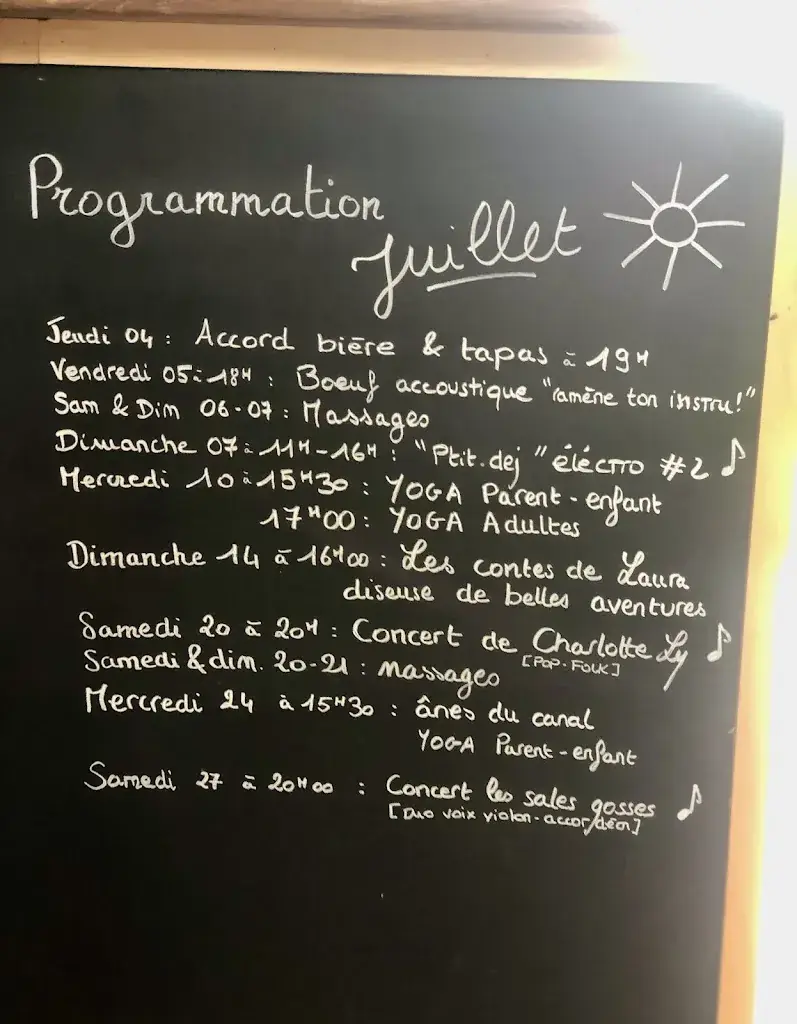 Programmation
Juillet
Jeudi 04 : Accord bière & tapas à 19H
Vendredi 05 à 18H : Boeuf accoustique "ramène ton instru!"
Sam & Dim 06-07 : Massages
Dimanche 07 à 11H-16H : "Ptit.dej" éléctro #2
Mercredi 10 à 15H30 : YOGA Parent-enfant
17H00 : YOGA Adultes
Dimanche 14 à 16H00 : Les contes de Laura
diseuse de belles aventures
Samedi 20 à 20H : Concert de Charlotte Ly
[POP-FOLK]
Samedi & dim. 20-21 : massages
Mercredi 24 à 15H30 : ânes du canal
YOGA Parent-enfant
Samedi 27 à 20H00 : Concert les sales gosses
[Duo voix violon-accordéon]